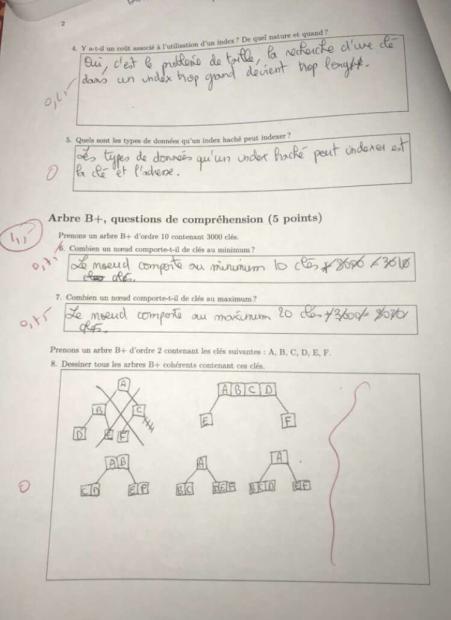 2
4. Y a-t-il un coût associé à l'utilisation d'un index ? De quel nature et quand ?
Oui, c'est le problème de taille, la recherche d'une clé
dans un index trop grand devient trop longue.
5. Quels sont les types de données qu'un index haché peut indexer ?
0
Les types de données qu'un index haché peut indexer est
la clé et l'adresse.
Arbre B+, questions de compréhension (5 points)
Prenons un arbre B+ d'ordre 10 contenant 3000 clés.
6. Combien un nœud comporte-t-il de clés au minimum ?
Le nœud comporte au minimum 10 clés
clés.
7. Combien un nœud comporte-t-il de clés au maximum ?
0,75
Le nœud comporte au maximum 20 clés
clés.
Prenons un arbre B+ d'ordre 2 contenant les clés suivantes : A, B, C, D, E, F.
8. Dessiner tous les arbres B+ cohérents contenant ces clés.
A
A B C D
B C
D E F
E F
A B
A
A
C D
E F
B C
E F
0